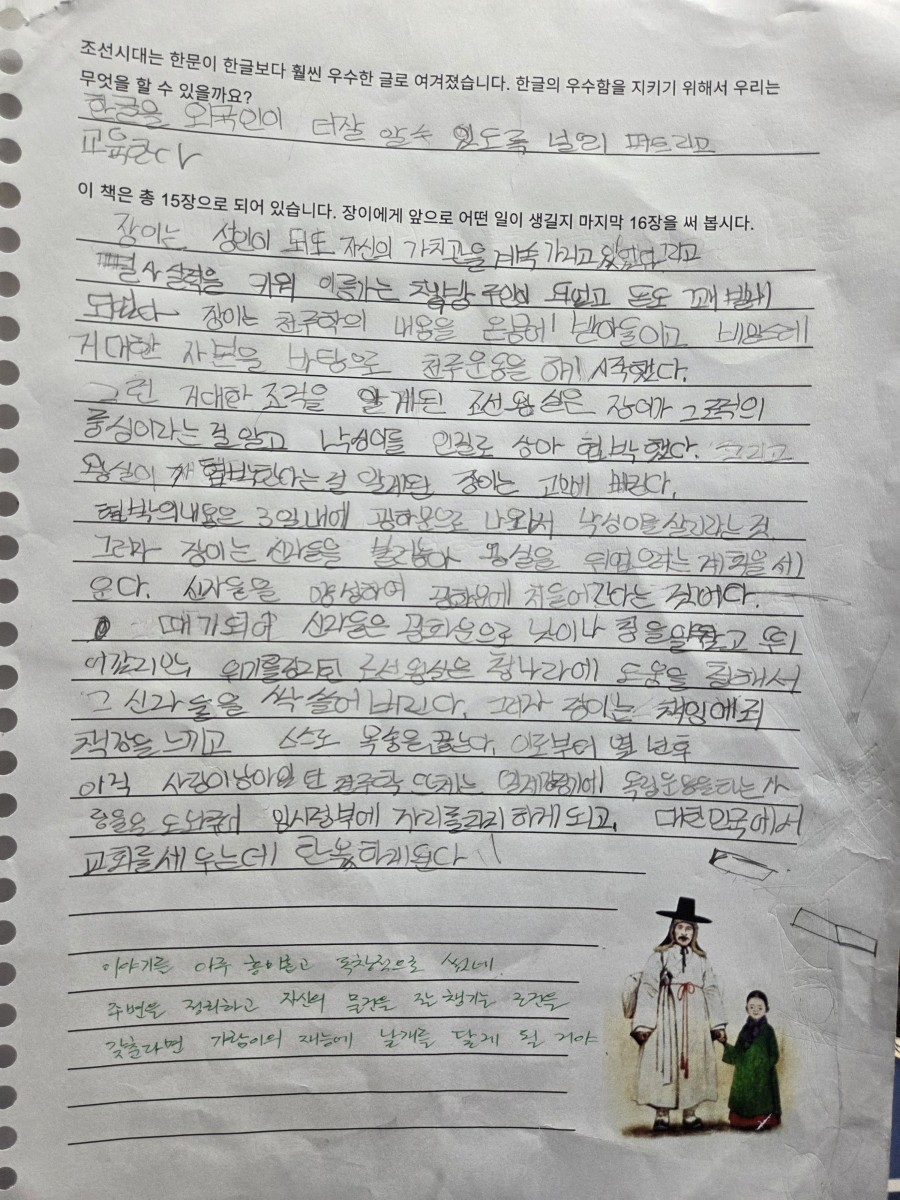 조선시대는 한문이 한글보다 훨씬 우수한 글로 여겨졌습니다. 한글의 우수함을 지키기 위해서 우리는
무엇을 할 수 있을까요?
한글을 외국인이 더잘 알수 있도록 널리 퍼트리고
교육한다
이 책은 총 15장으로 되어 있습니다. 장이에게 앞으로 어떤 일이 생길지 마지막 16장을 써 봅시다.
장이는 성인이 되또 자신의 가치관을 계속 가지고 있었다 그리고
필사 실력을 키워 이름가는 책방 주인이 되었고 돈도 꽤 벌게
되었다 장이는 천주학의 내용을 온몸에 받아들이고
거대한 자본을 바탕으로 천주운동을 하기 시작했다.
그런 거대한 조직을 알게된 조선왕실은 장이가 그조직의
중심이라는 걸 알고 낙심이를 인질로 삼아 협박했다. 그리고
왕실이 협박한다는 걸 알게된 장이는 고민에 빠진다.
협박의내용은 3일내에 광화문으로 나와서 낙심이를 살리라는 것
그러자 장이는 신자들을 불러놓아 왕실을 위협 하려는 계획을 세
운다. 신자들을 양성하여 광화문에 쳐들어간다는 것이다.
때가되어 신자들은 광화문으로 낫이나 창을 들고 뛰
어갔지만 위기를 조선왕실은 청나라에 도움을 청해서
그 신자들을 싹 쓸어버린다. 그러자 장이는 책임에죄
책감을 느끼고 스스로 목숨을 끊는다. 이로부터 몇 년후
아직 살아남아있던 천주학 일제강점기에 독립운동을하는 사
람들을 도와주어 임시정부에 자리를 하게 되고, 대한민국에서
교회를 세우는데 한몫하게된다
이야기를 아주 흥미롭고 독창적으로 썼네.
주변을 정리하고 자신의 물건을 잘 챙기는 조건을
갖춘다면 가람이의 재능에 날개를 달게 될 거야